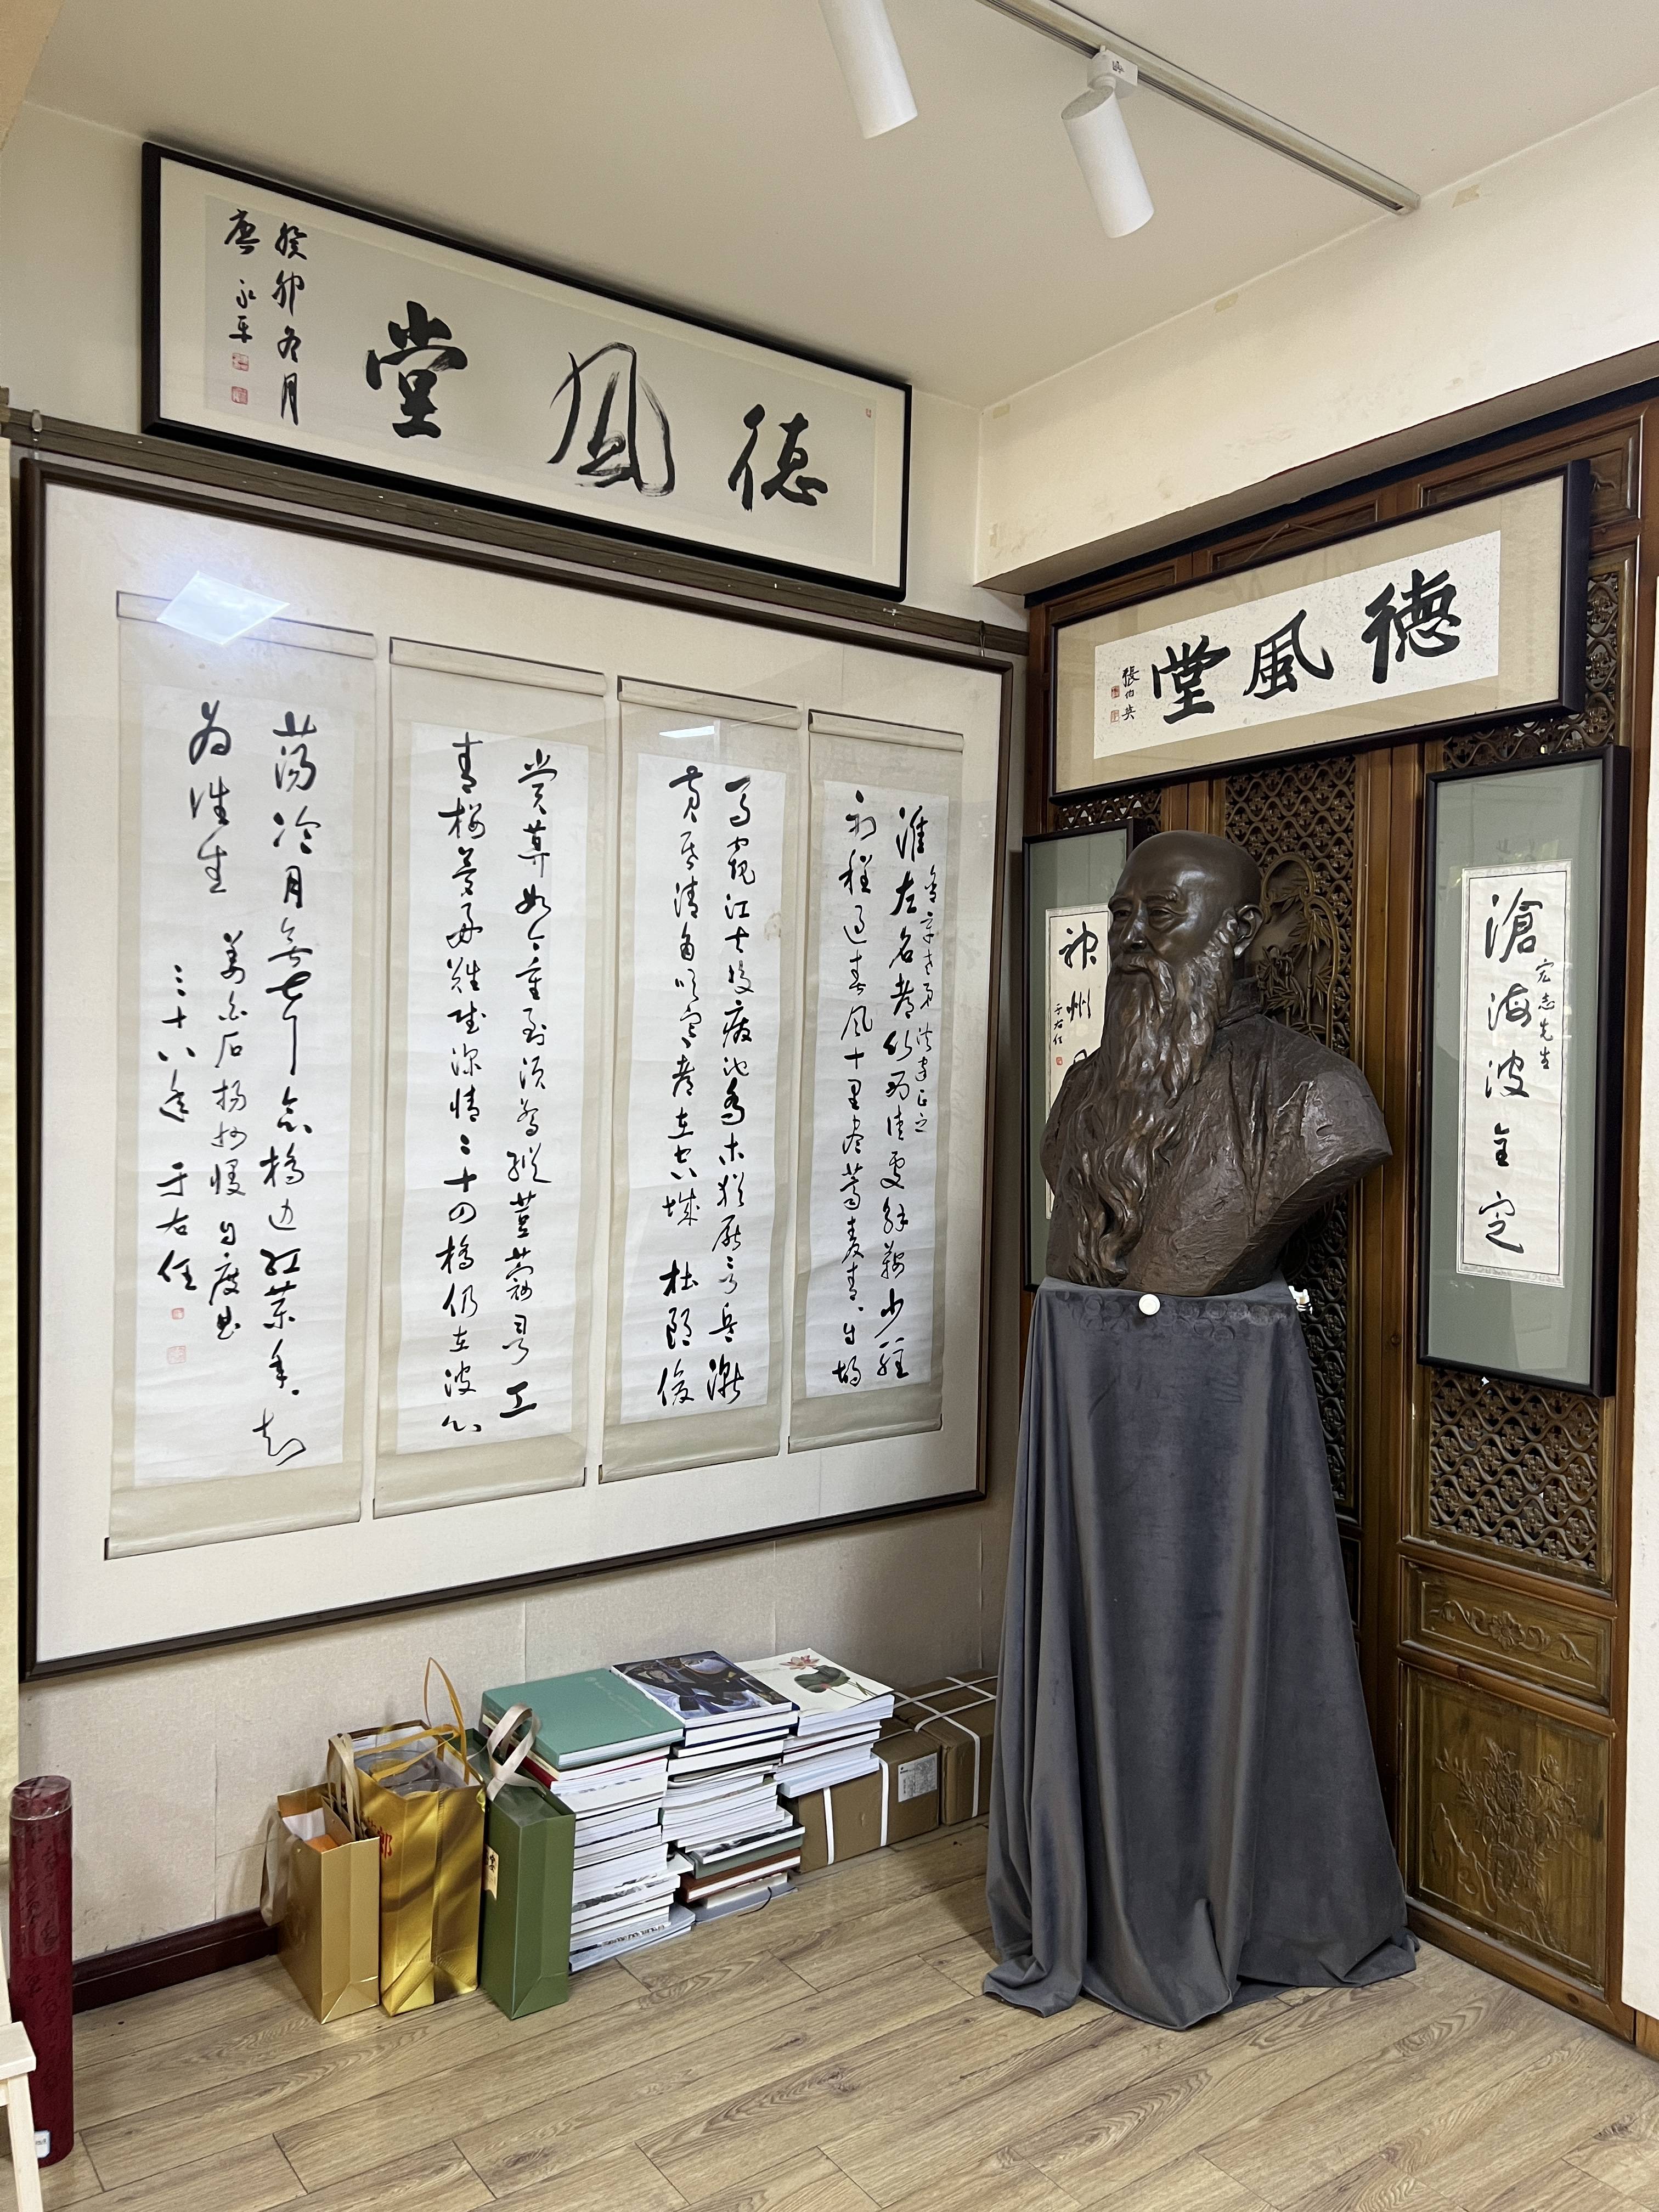 德風堂
癸卯冬月
唐永平
淮左名都竹西佳處解鞍少駐
初程過春風十里盡薺麥青〻自胡
馬窺江去後廢池喬木猶厭言兵漸
黃昏清角吹寒都在空城 杜郎俊
賞算如今重到須驚縱荳蔻詞工
青樓夢好難賦深情二十四橋仍在波心
蕩冷月無聲念橋邊紅藥年〻知
為誰生
姜白石揚州慢自度曲
三十八年 于右任
德風堂
張伯英
宏志先生
滄海波全定
神州
于右任